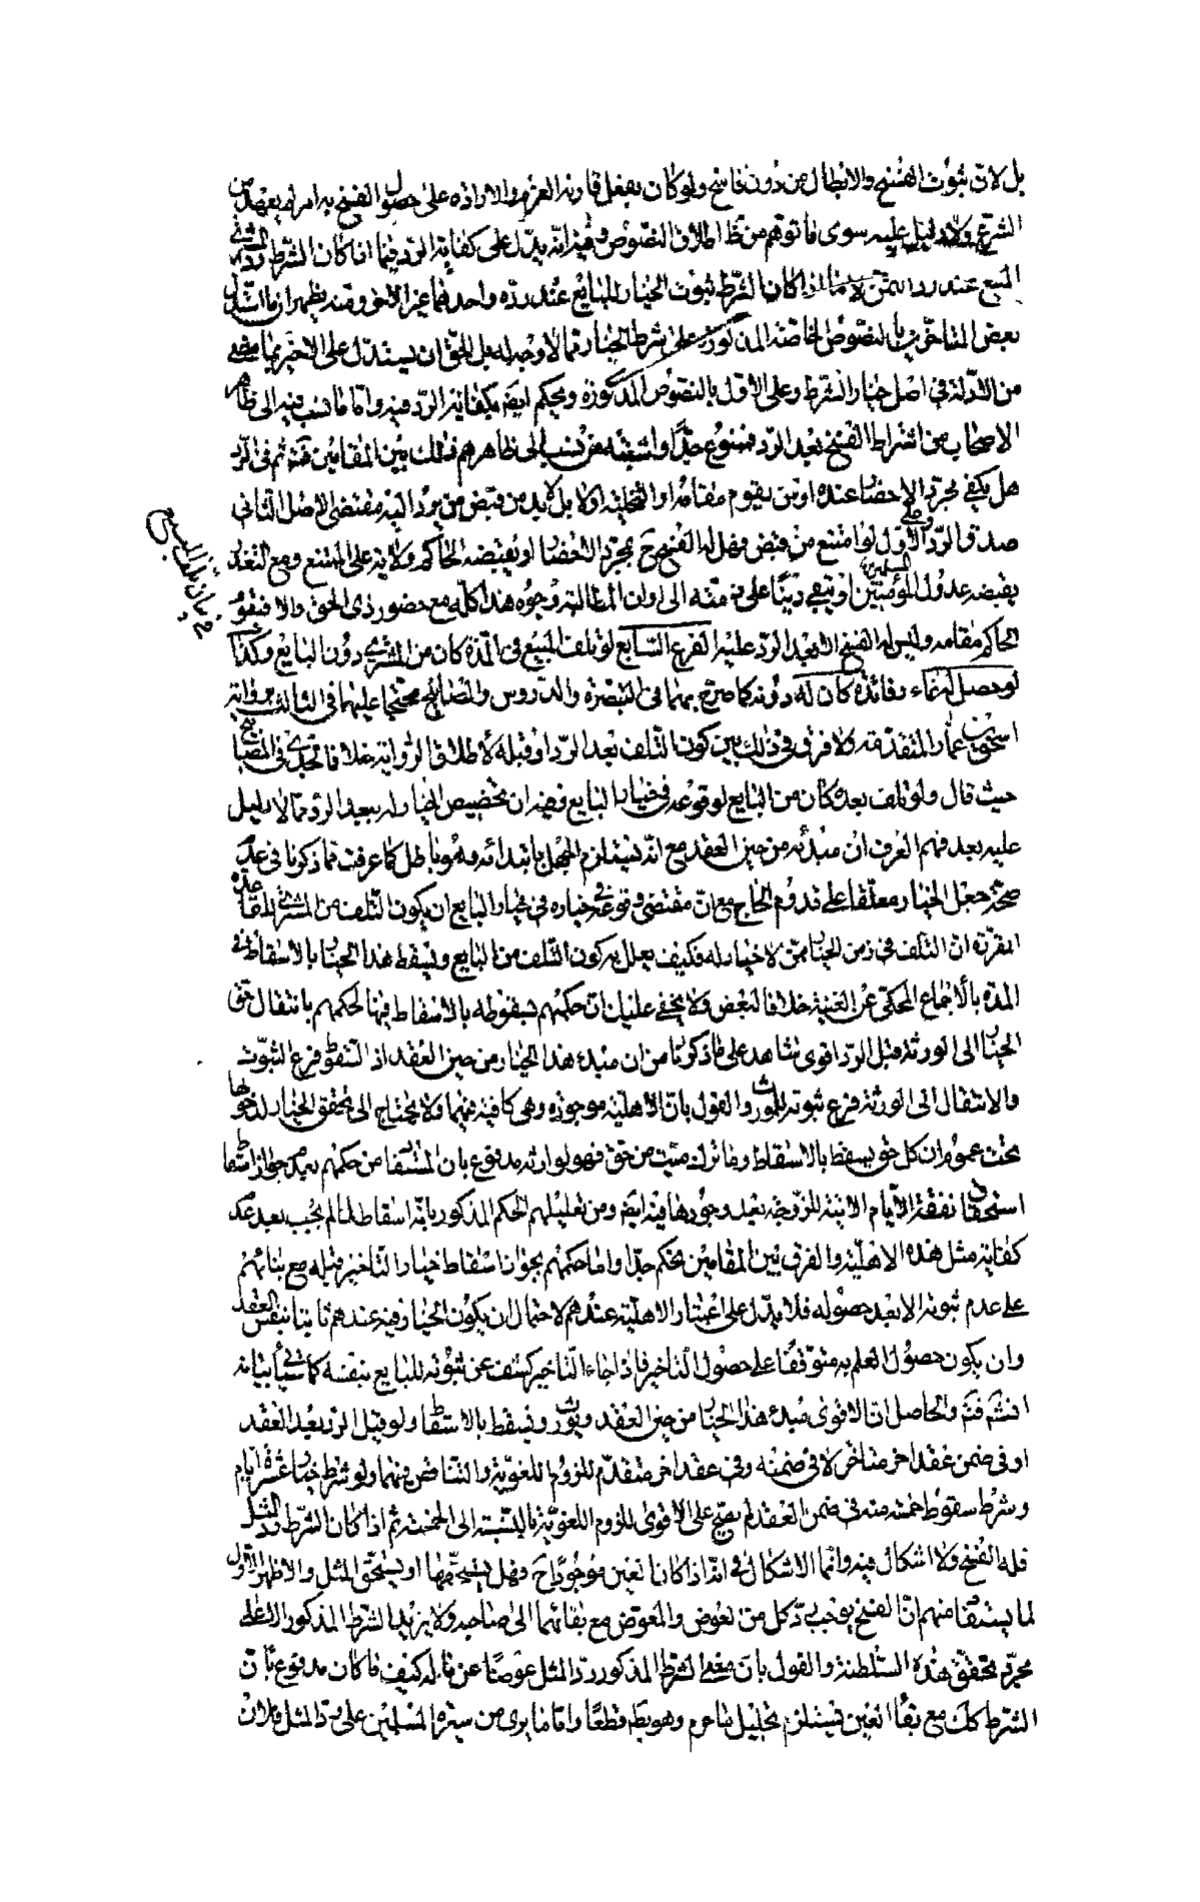 بل لان ثبوت الفسخ والابطال من دون فاسخ ولو كان بفعل قارنه العزم والارادة على حصول الفسخ به امر لم يعهد من
الشرع ولا دليل عليه سوى ما توهم من اطلاق النصوص وفيه انه يدل على كفاية الرد فيما اذا كان الشرط رد المشتري
المبيع عند رد الثمن لا ما اذا كان الشرط ثبوت الخيار للبايع عند رده واحدهما غير الاخر وقد يظهر ان ما استدل
بعض المتاخرين بالنصوص الخاصة المذكورة على شرط الخيار مما لا وجه له بل الحق ان يستدل على الاخير بما مضى
من الادلة في اصل خيار الشرط وعلى الاول بالنصوص المذكورة ويحكم ايضا بكفاية الرد فيه واما ما نسب فيه الى ظاهر
الاصحاب من اشتراط الفسخ بعد الرد فممنوع جدا واشتبه من نسب الى ظاهرهم ذلك بين المقامين فتم ثم في الرد
هل يكفي مجرد الاحضار عنده او من يقوم مقامه او التخلية او لا بل لا بد من قبض من يرد اليه مقتضى الاصل الثاني
صدق الرد وعلى الاول لو امتنع من قبض وهل له الفسخ ح بمجرد الاحضار او يقبضه الحاكم ولاية على الممتنع ومع التعذر
يقبضه عدول المؤمنين المسلمين او يبقى دينا على ذمته الى اوان المطالبة وجوه هذا كله مع حضور ذي الحق والا فيقوم
الحاكم مقامه وليس له الفسخ الا بعد الرد عليه الفرع السابع لو تلف المبيع في المدة كان من المشتري دون البايع وكذا
لو حصل له نماء وفائدة كان له دونه كما صرح بهما في التبصرة والدروس والمصابيح محتجا عليهما في الثالث برواية
اسحق بن عمار المتقدمة ولا فرق في ذلك بين كون التلف بعد الرد او قبله لاطلاق الرواية خلافا لجدي في المصابيح
حيث قال ولو تلف بعده كان من البايع لوقوعه في خيار البايع وفيه ان تخصيص الخيار له ببعد الرد مما لا دليل
عليه بعد فهم العرف ان مبدئه من حين العقد مع انه يستلزم الجهل بابتدائه وهو باطل كما عرفت مما ذكرنا في عدم
صحة جعل الخيار معلقا على قدوم الحاج مع ان مقتضى وقوعه في خياره في خيار البايع ان يكون التلف من المشتري للقاعدة
المقررة ان التلف في زمن الخيار ممن لا خيار له فكيف يعلل به كون التلف من البايع ويسقط هذا الخيار بالاسقاط في
المدة بالاجماع المحكي عن الغنية خلافا لبعض ولا يخفى عليك ان حكمهم بسقوطه بالاسقاط فيها كحكمهم بانتقال حق
الخيار الى الورثة قبل الرد اقوى شاهد على ما ذكرنا من ان مبدء هذا الخيار من حين العقد اذ السقوط فرع الثبوت
والانتقال الى الورثة فرع ثبوته للمورث والقول بان الاهلية موجودة وهي كافية فيهما ولا يحتاج الى تحقق الخيار لدخولها
تحت عموم ان كل حق يسقط بالاسقاط وما ترك ميت من حق فهو لوارثه مدفوع بان المستفاد من حكمهم بعدم جواز اسقاط
استحقاق نفقة الايام الاتية للزوجة بعد وجودها فيه ايضا ومن تعليلهم الحكم المذكور بانه اسقاط لما لم يجب بعد عدم
كفاية مثل هذه الاهلية والفرق بين المقامين تحكم جدا واما حكمهم بجواز اسقاط خيار التاخير قبله مع بنائهم
على عدم ثبوته الا بعد حصوله فلا يدل على اعتبار الاهلية عندهم لاحتمال ان يكون الخيار فيه عندهم ثابتا بنفس العقد
وان يكون حصول العلم به متوقفا على حصول التاخير فاذا جاء التاخير كشف عن ثبوته للبايع بنفسه كما سيأتي بيانه
انشم فتم والحاصل ان الاقوى مبدء هذا الخيار من حين العقد ويورث ويسقط بالاسقاط ولو قبل الرد بعد العقد
او في ضمن عقد اخر متاخر لا في ضمنه وفي عقد اخر متقدم للزوم اللغوية والتناقض فيهما ولو شرط خيار عشرة ايام
وشرط سقوط خمسة منه في ضمن العقد لم يصح على الاقوى للزوم اللغوية بالنسبة الى الخمسة ثم اذا كان الشرط رد المثل
فله الفسخ ولا اشكال فيه وانما الاشكال في انه اذا كانا لعين موجودا ح وهل يستحقها او يستحق المثل والاظهر الاول
لما يستفاد منهم ان الفسخ يوجب رد كل من العوض والمعوض مع بقائهما الى صاحبه ولا يزيد الشرط المذكور الا على
مجرد تحقق هذه السلطنة والقول بان معنى الشرط المذكور رد المثل عوضا عن ماله كيف ما كان مدفوع بان
الشرط كك مع بقاء العين فيستلزم تحليل ما حرم وهو بط قطعا واما ما يرى من سيرة المسلمين على رد المثل فلان